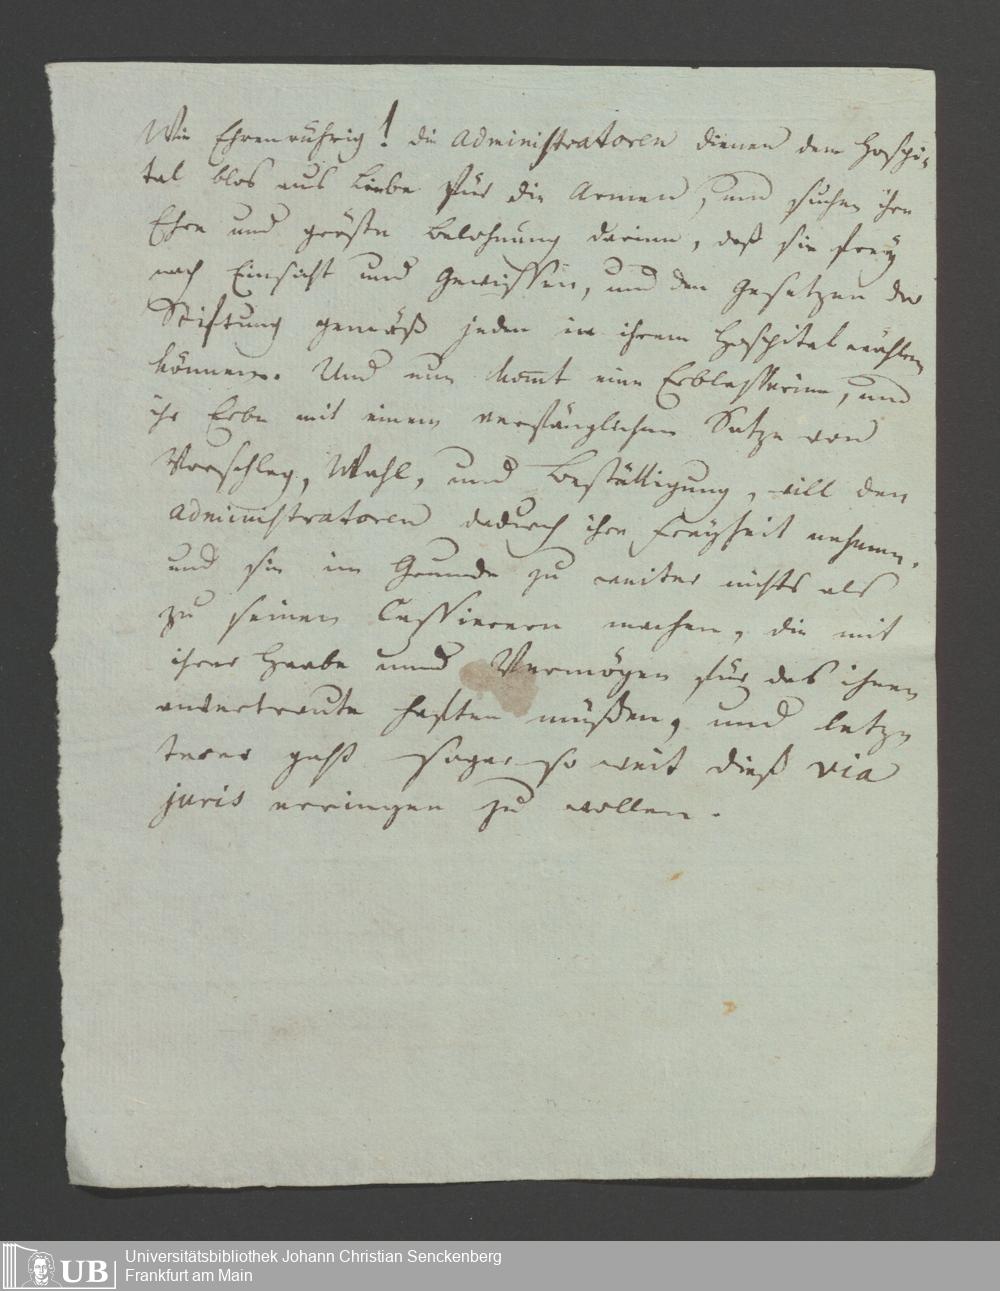 Wie Ehrenrührig! die Administratoren dienen dem Hospi-
tal blos aus Liebe für die Armen, und suchen ihre
Ehre und gröste Belohnung darinn, daß sie frey
nach Einsicht und Gewissen, und den Gesetzen der
Stiftung gemäß jeden in ihrem Hospital wählen
können. Und nun kom̄t eine Erblasserinn, und
ihr Erbe mit einem verfänglichen Satze von
Vorschlag, Wahl, und Bestättigung, will den
Administratoren dadurch ihre Freyheit nehmen,
und sie im Grunde zu weiter nichts als
zu seinen Cassierern machen, die mit
ihrer Haabe und Vermögen für das ihnen
anvertraute haften müßen, und letz-
terer geht sogar so weit dieß via
juris erringen zu wollen.
UB
Universitätsbibliothek Johann Christian Senckenberg
Frankfurt am Main